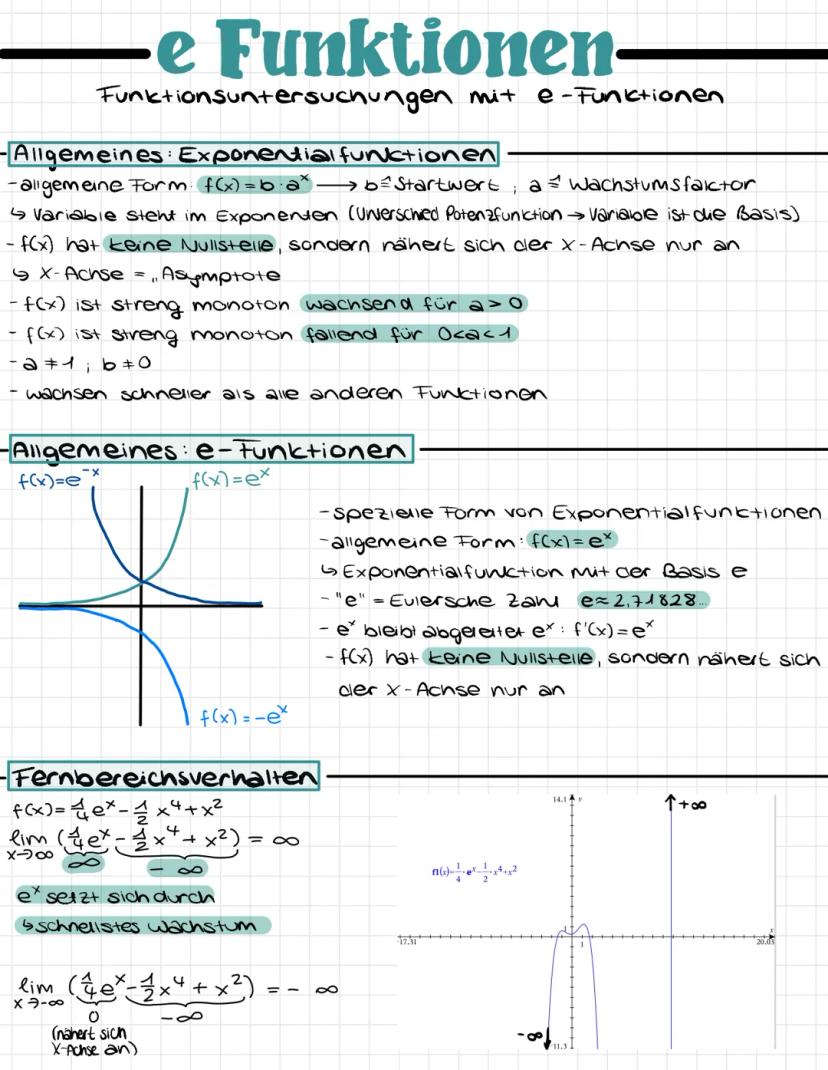 e Funktionen
Funktionsuntersuchungen mit e-Funktionen
Allgemeines: Exponentialfunktionen
- allgemeine Form: f(x) = b · aˣ ⟶ b ≙ Startwert ; a ≙ Wachstumsfaktor
↳ Variable steht im Exponenten (Unterschied Potenzfunktion → Variable ist die Basis)
- f(x) hat keine Nullstelle, sondern nähert sich der X-Achse nur an
↳ X-Achse = „Asymptote
- f(x) ist streng monoton wachsend für a > 0
- f(x) ist streng monoton fallend für 0<a<1
- a ≠ 1 ; b ≠ 0
- wachsen schneller als alle anderen Funktionen
Allgemeines: e-Funktionen
f(x)=e⁻ˣ
f(x)=eˣ
f(x)=-eˣ
- spezielle Form von Exponentialfunktionen
- allgemeine Form: f(x)=eˣ
↳ Exponentialfunktion mit der Basis e
- "e" = Eulersche Zahl e≈2,71828...
- eˣ bleibt abgeleitet eˣ: f'(x)=eˣ
- f(x) hat keine Nullstelle, sondern nähert sich
der X-Achse nur an
Fernbereichsverhalten
f(x)= 1/4 eˣ - 1/2 x⁴ + x²
lim x→∞ (1/4 eˣ - 1/2 x⁴ + x²) = ∞
∞ - ∞
eˣ setzt sich durch
↳ schnellstes Wachstum
lim x→-∞ (1/4 eˣ - 1/2 x⁴ + x²) = - ∞
0 -∞
(nähert sich
X-Achse an)
14.1 y
↑+∞
f1(x)=1/4·eˣ-1/2·x⁴+x²
1
-17.31
1
x
20.03
-∞↓
-11.3